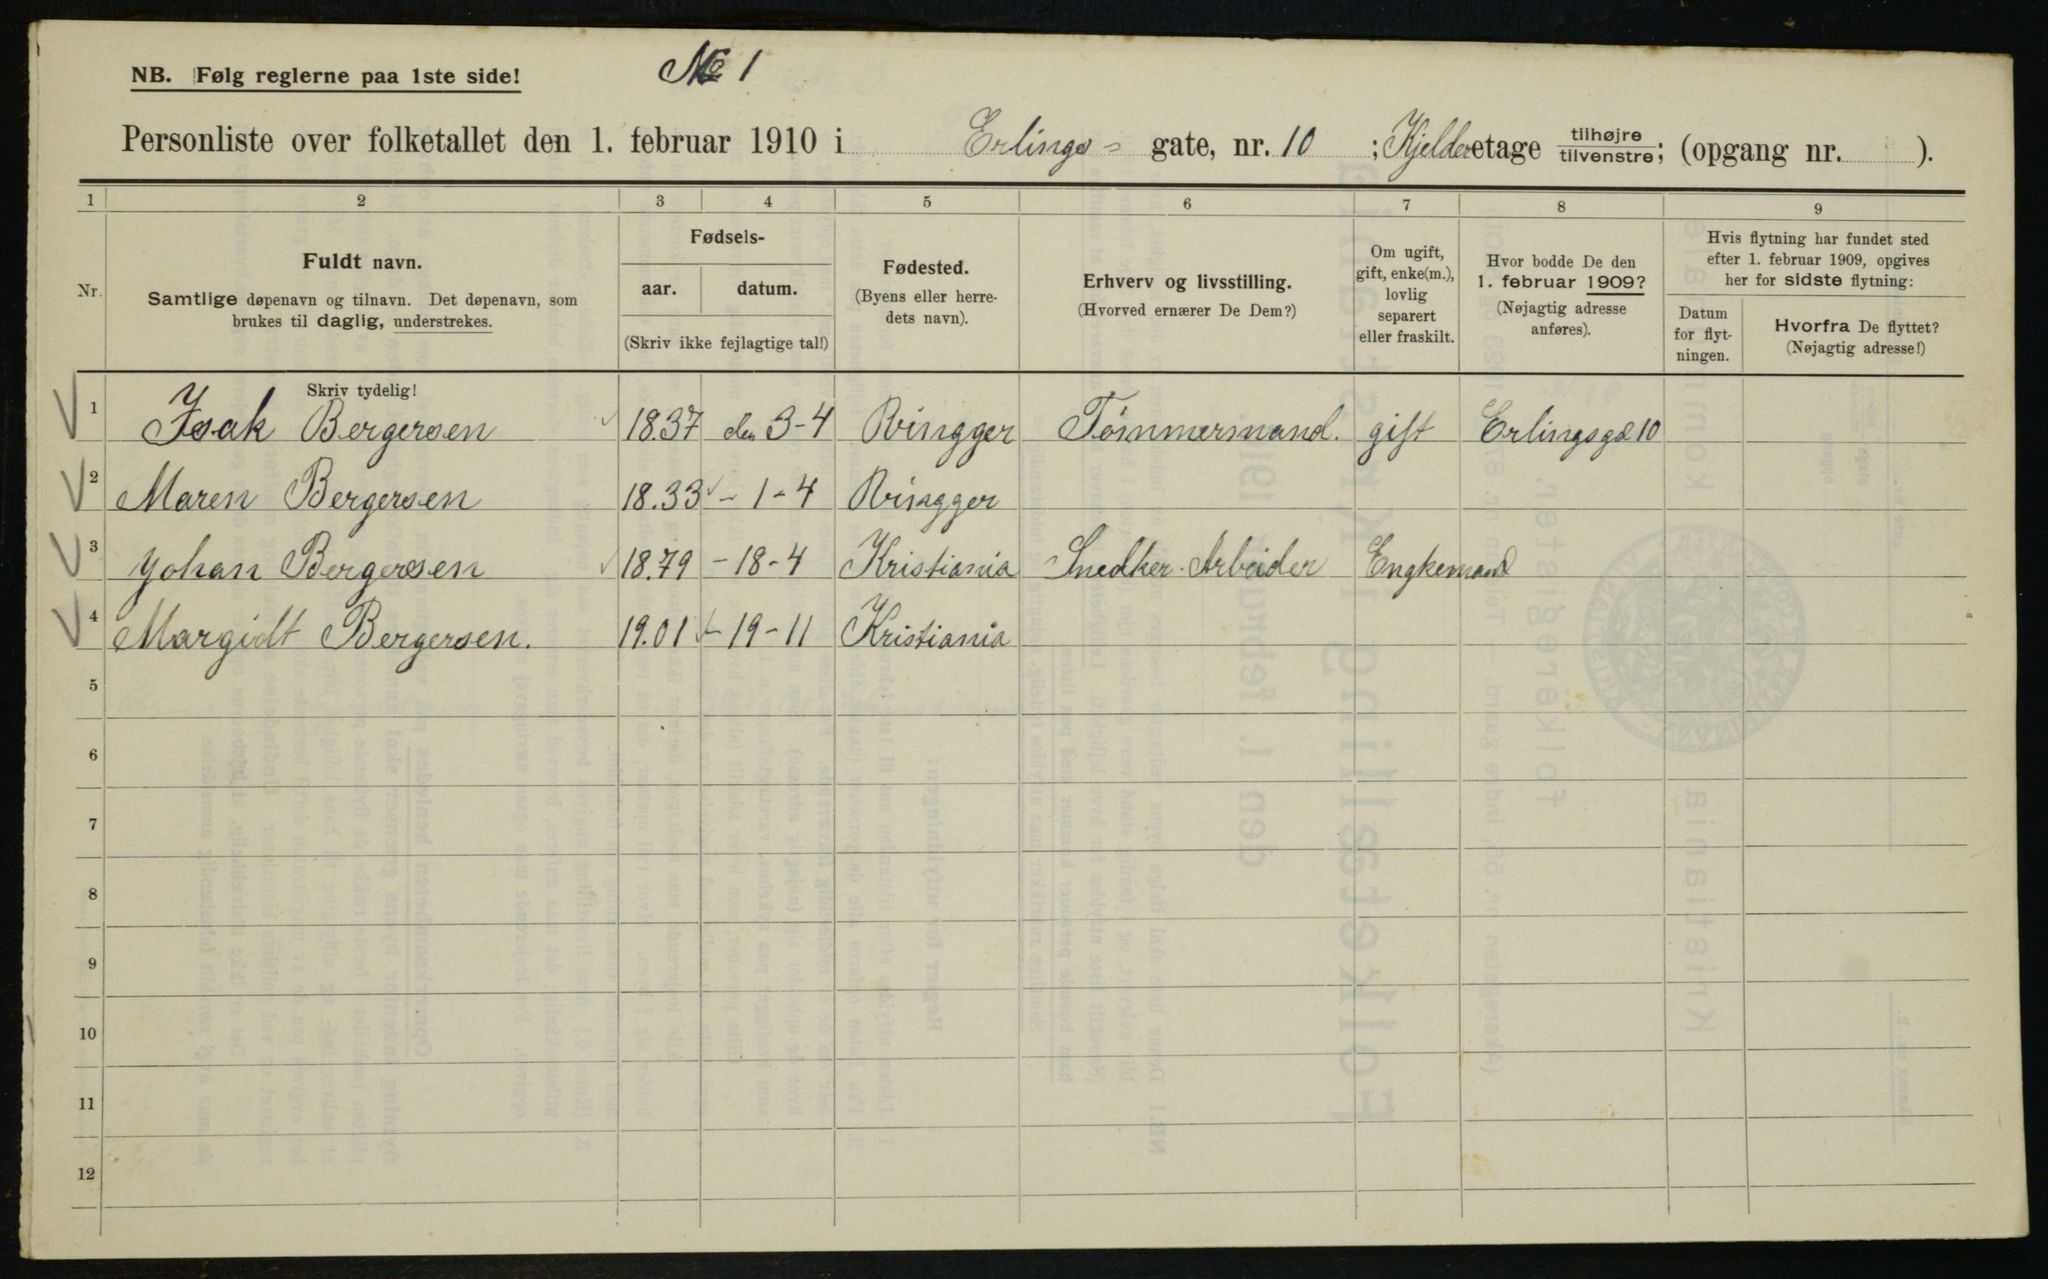 NB. Følg reglerne paa 1ste side!
No 1
Personliste over folketallet den 1. februar 1910 i Erlings- gate, nr. 10 ; Kjelder etage tilhøjre/tilvenstre; (opgang nr. ).
1 2 3 4 5 6 7 8 9
Nr.
Fuldt navn.
Samtlige døpenavn og tilnavn. Det døpenavn, som
brukes til daglig, understrekes.
Fødsels-
aar. datum.
(Skriv ikke fejlagtige tal!)
Fødested.
(Byens eller herre-
dets navn).
Erhverv og livsstilling.
(Hvorved ernærer De Dem?)
Om ugift,
gift, enke(m.),
lovlig
separert
eller fraskilt.
Hvor bodde De den
1. februar 1909?
(Nøjagtig adresse
anføres).
Hvis flytning har fundet sted
efter 1. februar 1909, opgives
her for sidste flytning:
Datum
for flyt-
ningen.
Hvorfra De flyttet?
(Nøjagtig adresse!)
Skriv tydelig!
1 Isak Bergersen 18.37 den 3-4 Ringger Tømmermand. gift Erlingsgd 10
2 Maren Bergersen 18.33 - 1-4 Ringger
3 Johan Bergersen 18.79 - 18-4 Kristiania Snedker-Arbeider Engkemand
4 Margidt Bergersen. 19.01 - 19-11 Kristiania
5
6
7
8
9
10
11
12